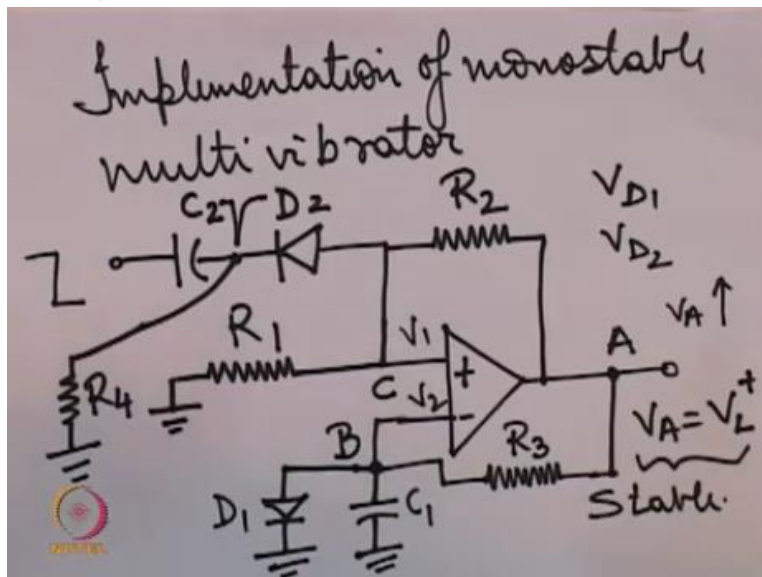 Implementation of monostable
multi vibrator
C2 D2
R2
VD1
VD2
VA ↑
R1
V1
A
R4
C
V2
+
-
R3
VA = VL+
B
D1
C1
Stable.
NPTEL